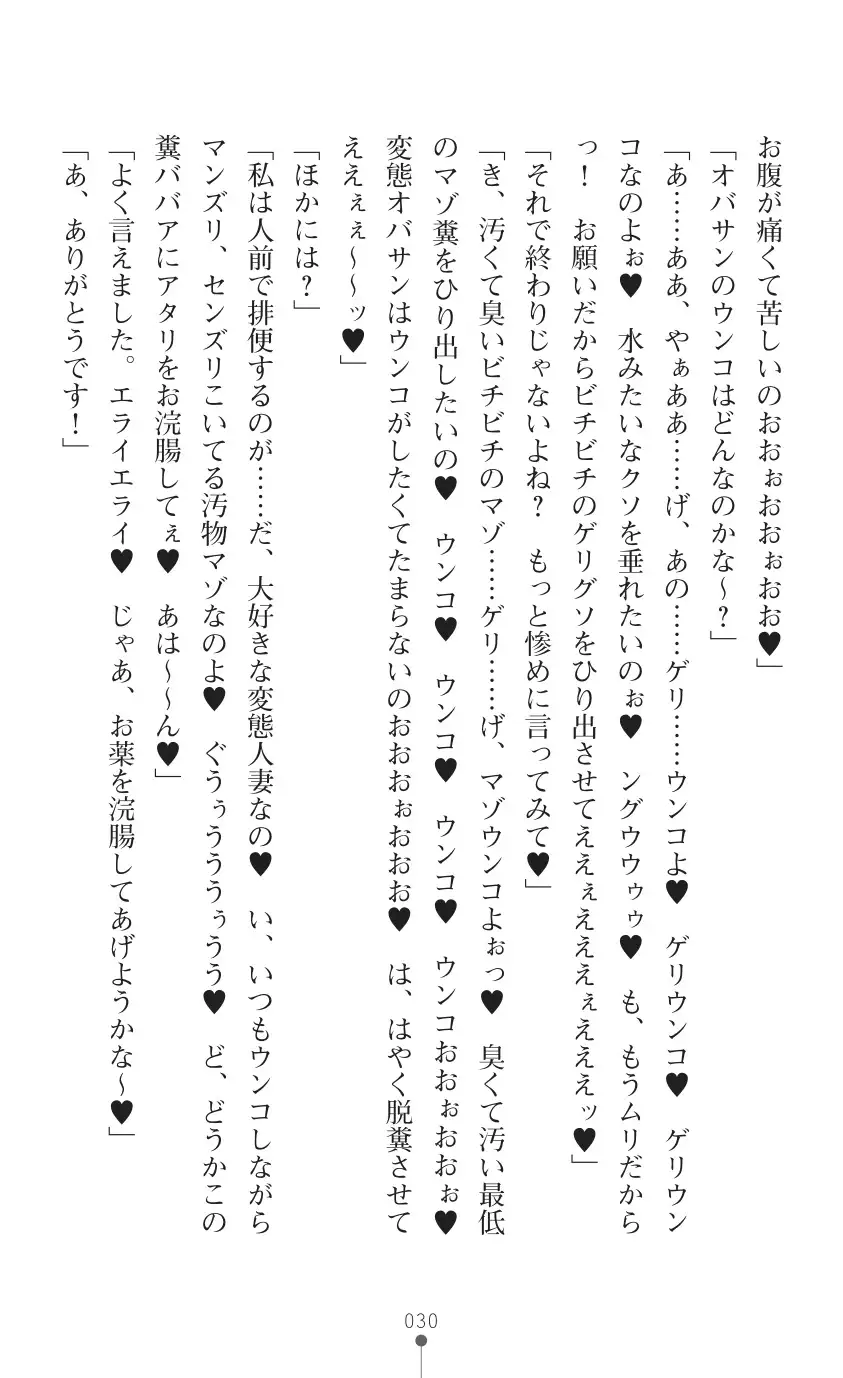 お腹が痛くて苦しいのおおぉおおぉおお♥」
「オバサンのウンコはどんなのかな～？」
「あ……ああ、やぁああ……げ、あの……ゲリ……ウンコよ♥　ゲリウンコ♥　ゲリウン
コなのよぉ♥　水みたいなクソを垂れたいのぉ♥　ングウウゥゥ♥　も、もうムリだから
っ！　お願いだからビチビチのゲリグソをひり出させてええぇえええぇえええッ♥」
「それで終わりじゃないよね？　もっと惨めに言ってみて♥」
「き、汚くて臭いビチビチのマゾ……ゲリ……げ、マゾウンコよぉっ♥　臭くて汚い最低
のマゾ糞をひり出したいの♥　ウンコ♥　ウンコ♥　ウンコ♥　ウンコおおぉおおぉ♥
変態オバサンはウンコがしたくてたまらないのおおおぉおおお♥　は、はやく脱糞させて
ええぇぇ～～ッ♥」
「ほかには？」
「私は人前で排便するのが……だ、大好きな変態人妻なの♥　い、いつもウンコしながら
マンズリ、センズリこいてる汚物マゾなのよ♥　ぐうぅうううぅうう♥　ど、どうかこの
糞ババアにアタリをお浣腸してぇ♥　あは～～ん♥」
「よく言えました。エライエライ♥　じゃあ、お薬を浣腸してあげようかな～♥」
「あ、ありがとうです！」
030